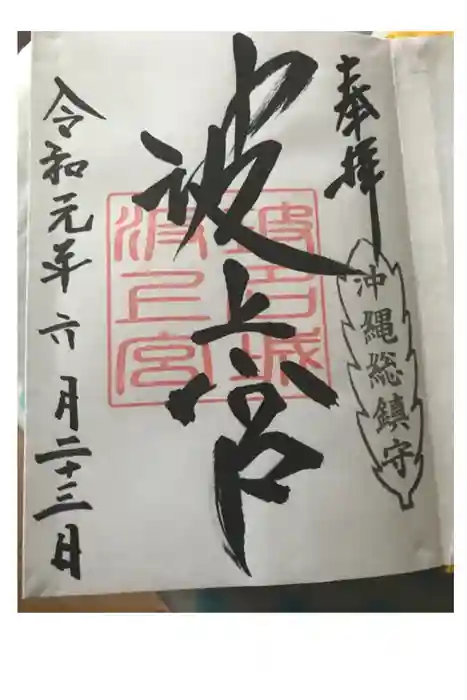 奉拝
沖縄総鎮守
波上宮
波上宮
令和元年六月二十三日